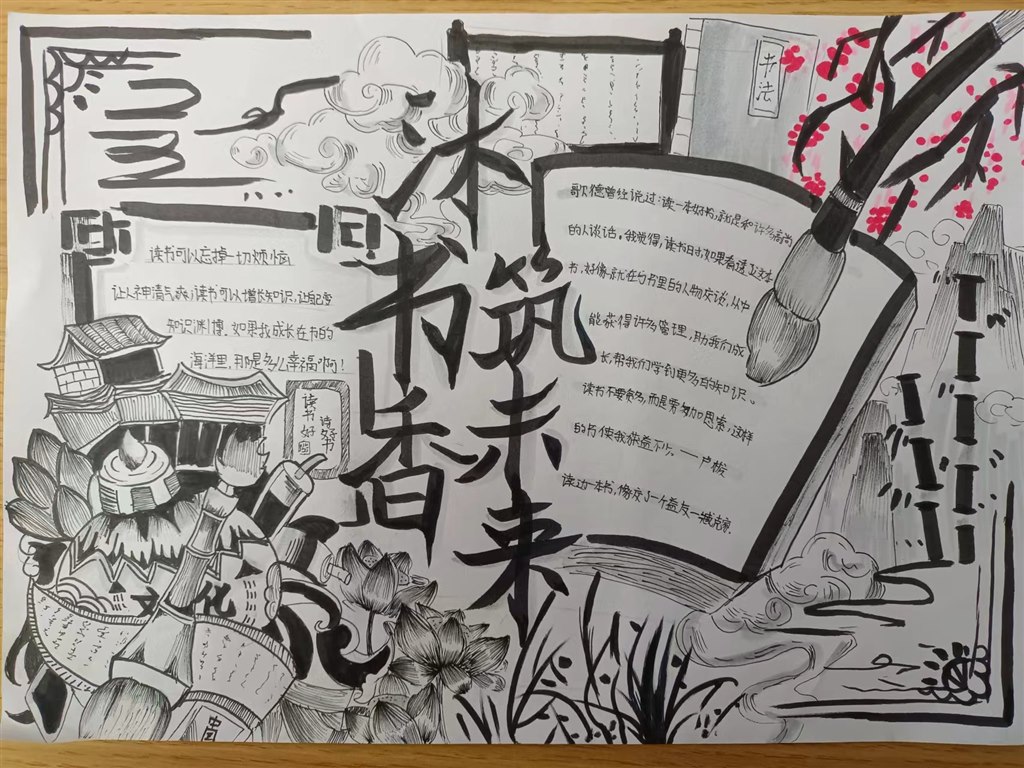 沐书香
筑未来
书法
读书可以忘掉一切烦恼
让人神清气爽,读书可以增长知识,让自己变
知识渊博。如果我成长在书的
海洋里,那是多么幸福啊!
读书
读好书
文化
歌德曾经说过:读一本好书,就是和许多高尚
的人谈话。我觉得,读书时如果看透了这本
书,好像就在与书里的人物交谈,从中
能获得许多管理,助我们成
长,帮我们学到更多的知识。
读书不要贪多,而是要多加思索,这样
的书使我获益不少。——卢梭
读过一本书,像交了一个益友—臧克家